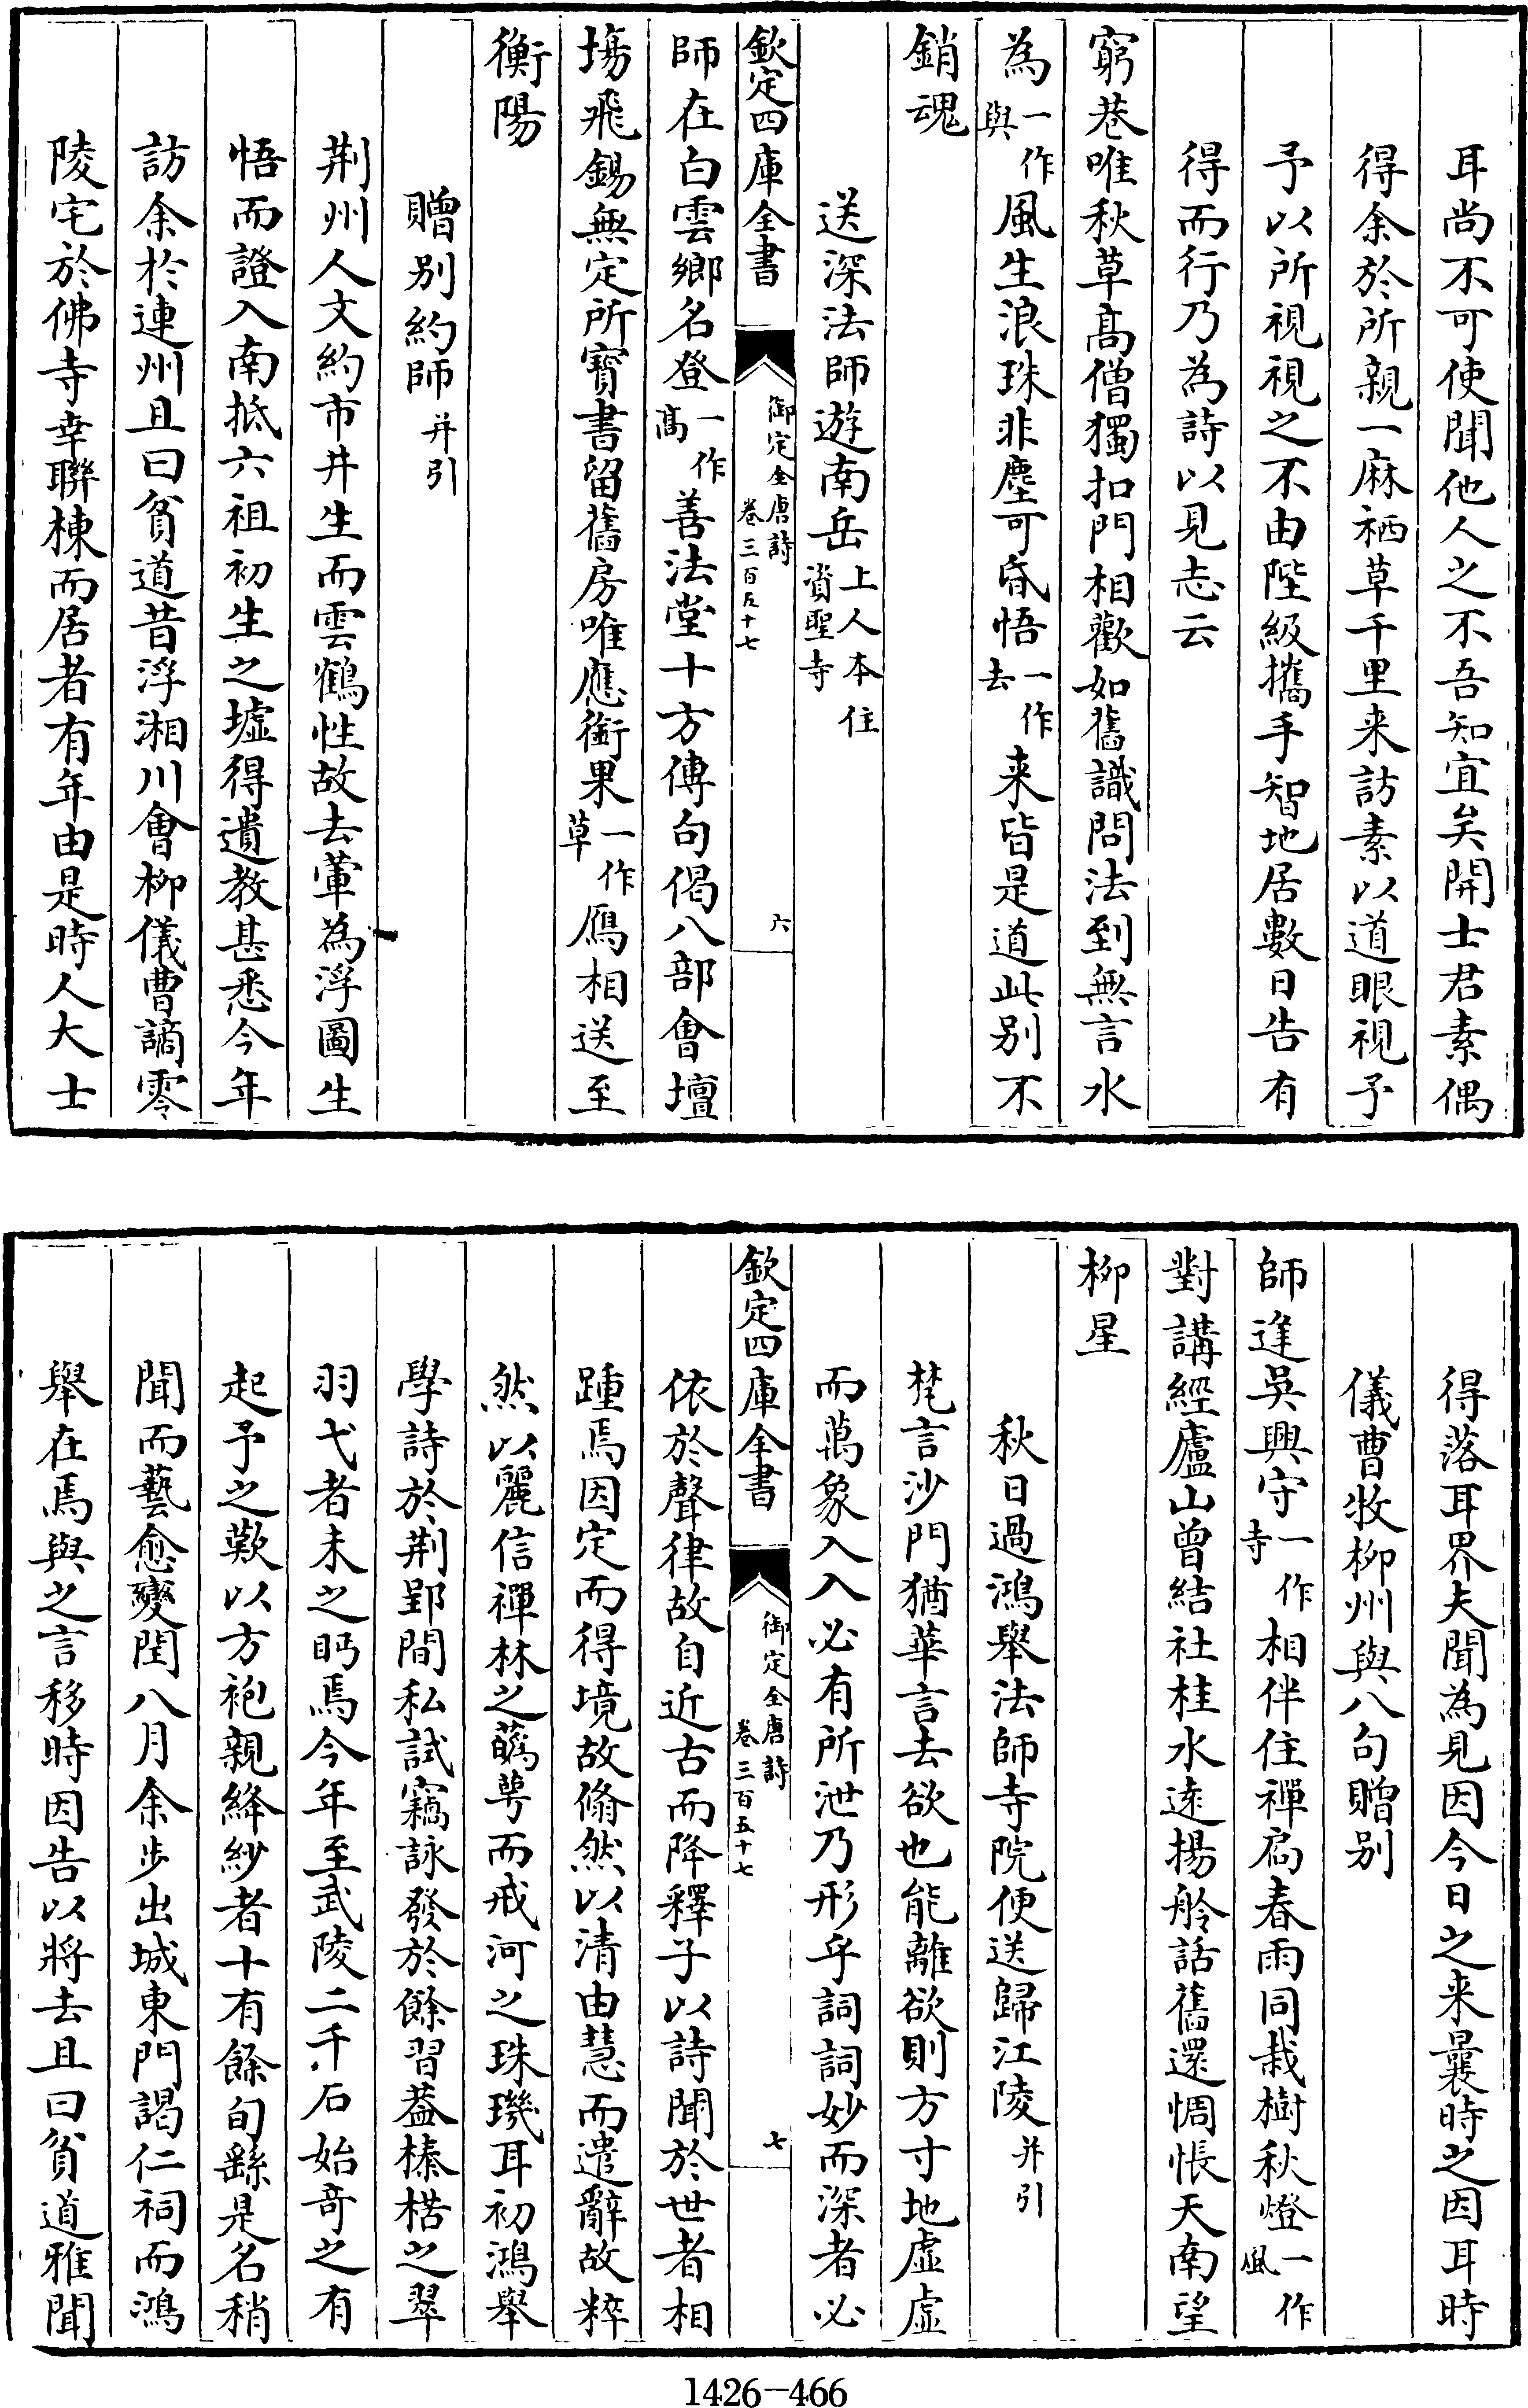 耳尚不可使聞他人之不吾知宜矣開士君素偶
得余於所親一麻栖草千里来訪素以道眼視予
予以所視視之不由陛級攜手智地居數日告有
得而行乃為詩以見志云
窮巷唯秋草高僧獨扣門相歡如舊識問法到無言水
為一作與風生浪珠非塵可昏悟一作去来皆是道此别不
銷魂
送深法師遊南岳上人本住資聖寺
欽定四庫全書
御定全唐詩
卷三百五十七
六
師在白雲鄉名登一作高善法堂十方傳句偈八部會壇
場飛錫無定所寳書留舊房唯應銜果一作草鴈相送至
衡陽
贈别約師并引
荆州人文約市井生而雲鶴性故去葷為浮圖生
悟而證入南抵六祖初生之墟得遺教甚悉今年
訪余於連州且曰貧道昔浮湘川會柳儀曹謫零
陵宅於佛寺幸聯棟而居者有年由是時人大士
得落耳界夫聞為見因今日之来曩時之因耳時
儀曹牧柳州與八句贈别
師逢吳興守一作寺相伴住禪扃春雨同栽樹秋燈一作風
對講經廬山曾結社桂水遠揚舲話舊還惆悵天南望
柳星
秋日過鴻舉法師寺院便送歸江陵并引
梵言沙門猶華言去欲也能離欲則方寸地虚虚
而萬象入入必有所泄乃形乎詞詞妙而深者必
欽定四庫全書
御定全唐詩
卷三百五十七
七
依於聲律故自近古而降釋子以詩聞於世者相
踵焉因定而得境故翛然以清由慧而遣辭故粹
然以麗信禪林之蘤萼而戒河之珠璣耳初鴻舉
學詩於荆郢間私試竊詠發於餘習葢榛楛之翠
羽弋者未之眄焉今年至武陵二千石始奇之有
起予之歎以方袍親絳紗者十有餘旬繇是名稍
聞而藝愈變閏八月余步出城東門謁仁祠而鴻
舉在焉與之言移時因告以將去且曰貧道雅聞
1426-466